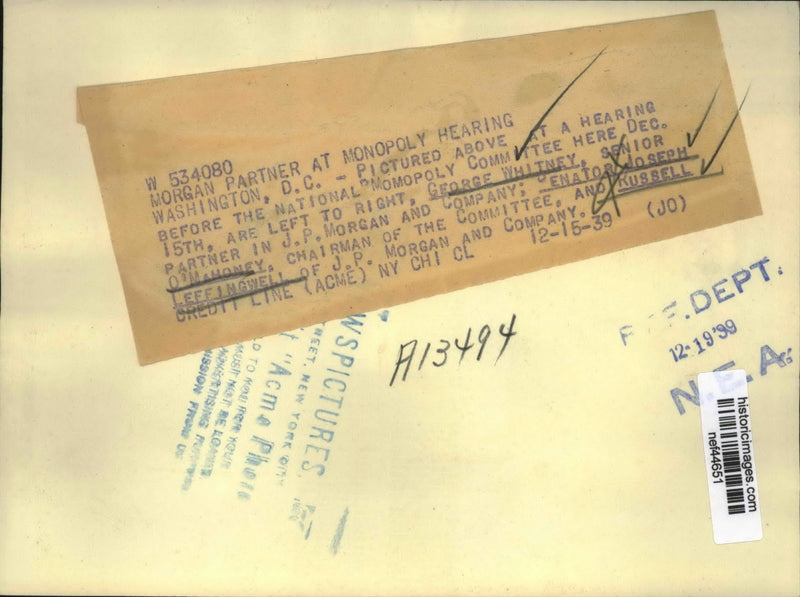 W 534080
MORGAN PARTNER AT MONOPOLY HEARING
WASHINGTON, D.C. - PICTURED ABOVE AT A HEARING
BEFORE THE NATIONAL MOMOPOLY COMMITTEE HERE DEC.
15TH, ARE LEFT TO RIGHT, GEORGE WHITNEY, SENIOR
PARTNER IN J.P. MORGAN AND COMPANY; SENATOR JOSEPH
O'MAHONEY, CHAIRMAN OF THE COMMITTEE, AND RUSSELL
LEFFINGWELL OF J.P. MORGAN AND COMPANY.
CREDIT LINE (ACME) NY CHI CL 12-15-39 (JO)
A13494
REF. DEPT.
12-19'39
N.E.A.
WSPICTURES,
REET, NEW YORK CITY
"Acme Photo
MUST NOT BE LOANED
historicimages.com
nef44651